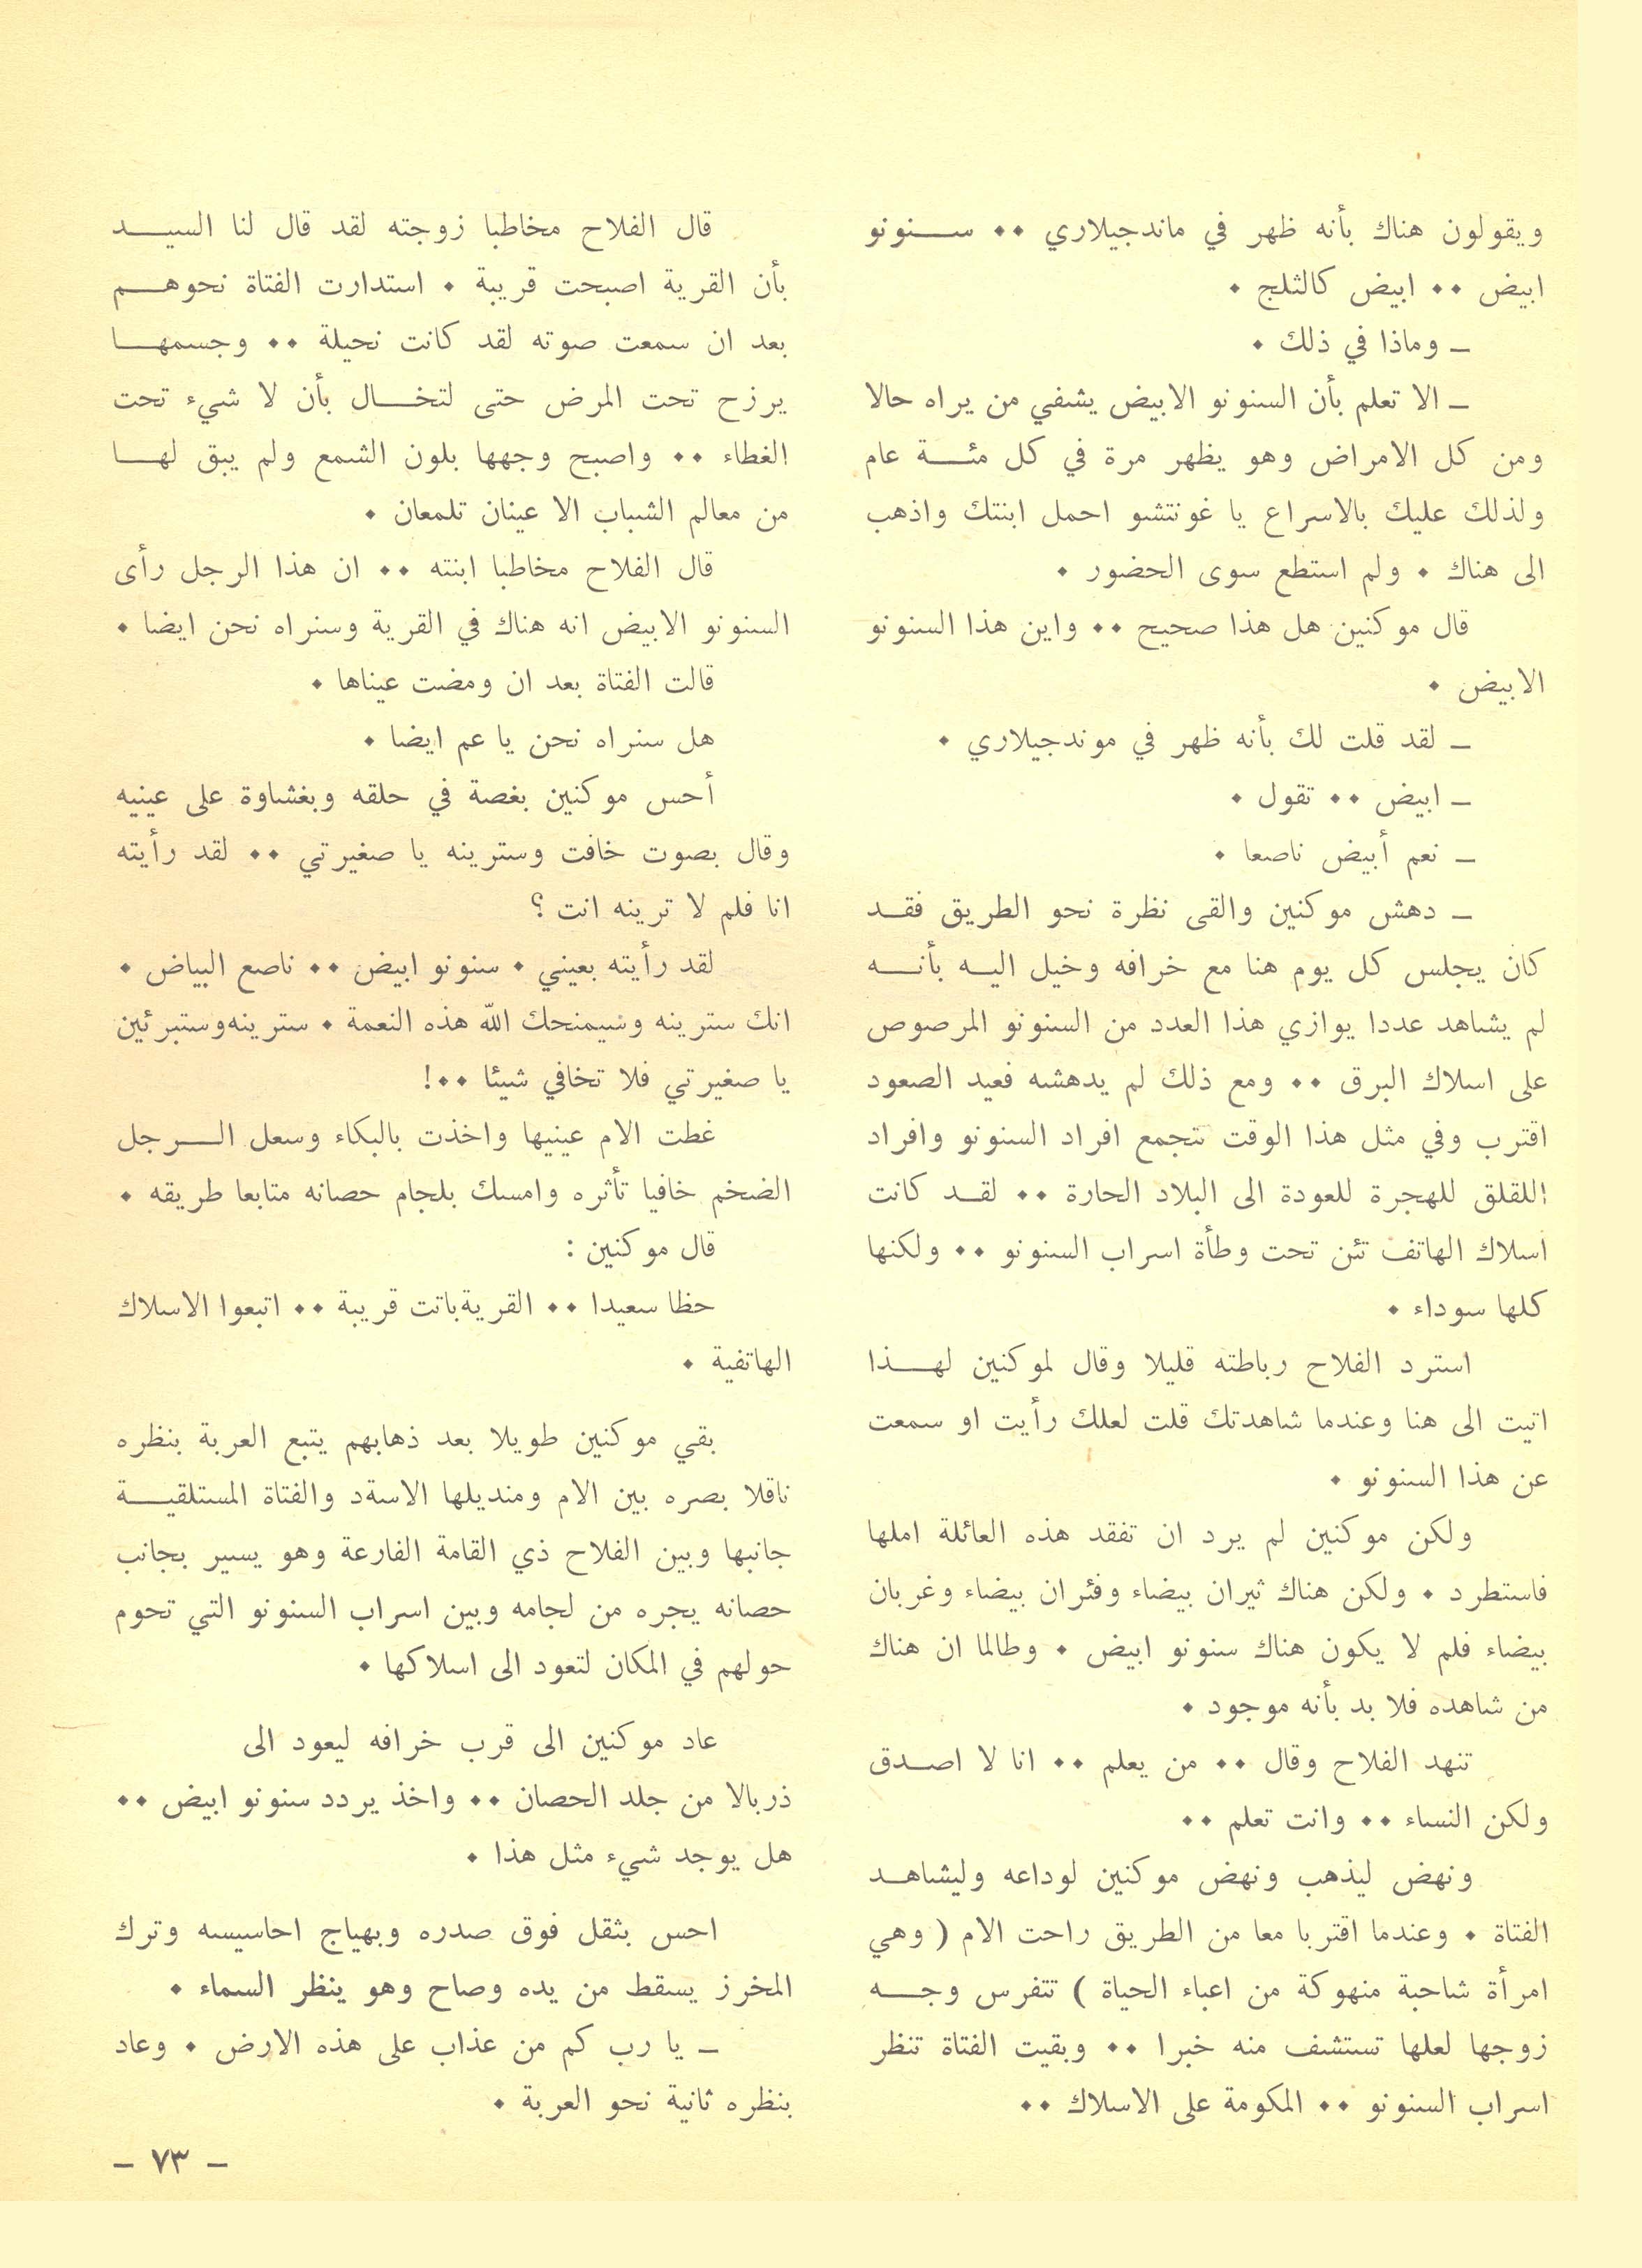 ويقولون هناك بأنه ظهر في ماندجيلاري ٠٠ سنونو
ابيض ٠٠ ابيض كالثلج ٠
ـ وماذا في ذلك ٠
ـ الا تعلم بأن السنونو الابيض يشفي من يراه حالا
ومن كل الامراض وهو يظهر مرة في كل مئة عام
ولذلك عليك بالاسراع يا غونتشو احمل ابنتك واذهب
الى هناك ٠ ولم استطع سوى الحضور ٠
قال موكنين هل هذا صحيح ٠٠ واين هذا السنونو
الابيض ٠
ـ لقد قلت لك بأنه ظهر في موندجيلاري ٠
ـ ابيض ٠٠ تقول ٠
ـ نعم أبيض ناصعا ٠
ـ دهش موكنين والقى نظرة نحو الطريق فقد
كان يجلس كل يوم هنا مع خرافه وخيل اليه بأنه
لم يشاهد عددا يوازي هذا العدد من السنونو المرصوص
على اسلاك البرق ٠٠ ومع ذلك لم يدهشه فعيد الصعود
اقترب وفي مثل هذا الوقت تتجمع افراد السنونو وافراد
اللقلق للهجرة للعودة الى البلاد الحارة ٠٠ لقد كانت
اسلاك الهاتف تئن تحت وطأة اسراب السنونو ٠٠ ولكنها
كلها سوداء ٠
استرد الفلاح رباطته قليلا وقال لموكنين لهذا
اتيت الى هنا وعندما شاهدتك قلت لعلك رأيت او سمعت
عن هذا السنونو ٠
ولكن موكنين لم يرد ان تفقد هذه العائلة املها
فاستطرد ٠ ولكن هناك ثيران بيضاء وفئران بيضاء وغربان
بيضاء فلم لا يكون هناك سنونو ابيض ٠ وطالما ان هناك
من شاهده فلا بد بأنه موجود ٠
تنهد الفلاح وقال ٠٠ من يعلم ٠٠ انا لا اصدق
ولكن النساء ٠٠ وانت تعلم ٠٠
ونهض ليذهب ونهض موكنين لوداعه وليشاهد
الفتاة ٠ وعندما اقتربا معا من الطريق راحت الام ( وهي
امرأة شاحبة منهوكة من اعباء الحياة ) تتفرس وجه
زوجها لعلها تستشف منه خبرا ٠٠ وبقيت الفتاة تنظر
اسراب السنونو ٠٠ المكومة على الاسلاك ٠٠
قال الفلاح مخاطبا زوجته لقد قال لنا السيد
بأن القرية اصبحت قريبة ٠ استدارت الفتاة نحوهم
بعد ان سمعت صوته لقد كانت نحيلة ٠٠ وجسمها
يرزح تحت المرض حتى لتخال بأن لا شيء تحت
الغطاء ٠٠ واصبح وجهها بلون الشمع ولم يبق لها
من معالم الشباب الا عينان تلمعان ٠
قال الفلاح مخاطبا ابنته ٠٠ ان هذا الرجل رأى
السنونو الابيض انه هناك في القرية وسنراه نحن ايضا ٠
قالت الفتاة بعد ان ومضت عيناها ٠
هل سنراه نحن يا عم ايضا ٠
أحس موكنين بغصة في حلقه وبغشاوة على عينيه
وقال بصوت خافت وسترينه يا صغيرتي ٠٠ لقد رأيته
انا فلم لا ترينه انت ؟
لقد رأيته بعيني ٠ سنونو ابيض ٠٠ ناصع البياض ٠
انك سترينه وسيمنحك الله هذه النعمة ٠ سترينه وستبرئين
يا صغيرتي فلا تخافي شيئا ٠٠!
غطت الام عينيها واخذت بالبكاء وسعل الرجل
الضخم خافيا تأثره وامسك بلجام حصانه متابعا طريقه ٠
قال موكنين :
حظا سعيدا ٠٠ القرية باتت قريبة ٠٠ اتبعوا الاسلاك
الهاتفية ٠
بقي موكنين طويلا بعد ذهابهم يتبع العربة بنظره
ناقلا بصره بين الام ومنديلها الاسود والفتاة المستلقية
جانبها وبين الفلاح ذي القامة الفارعة وهو يسير بجانب
حصانه يجره من لجامه وبين اسراب السنونو التي تحوم
حولهم في المكان لتعود الى اسلاكها ٠
عاد موكنين الى قرب خرافه ليعود الى
ذربالا من جلد الحصان ٠٠ واخذ يردد سنونو ابيض ٠٠
هل يوجد شيء مثل هذا ٠
احس بثقل فوق صدره وبهياج احاسيسه وترك
المخرز يسقط من يده وصاح وهو ينظر السماء ٠
ـ يا رب كم من عذاب على هذه الارض ٠ وعاد
بنظره ثانية نحو العربة ٠
ـ ٧٣ ـ